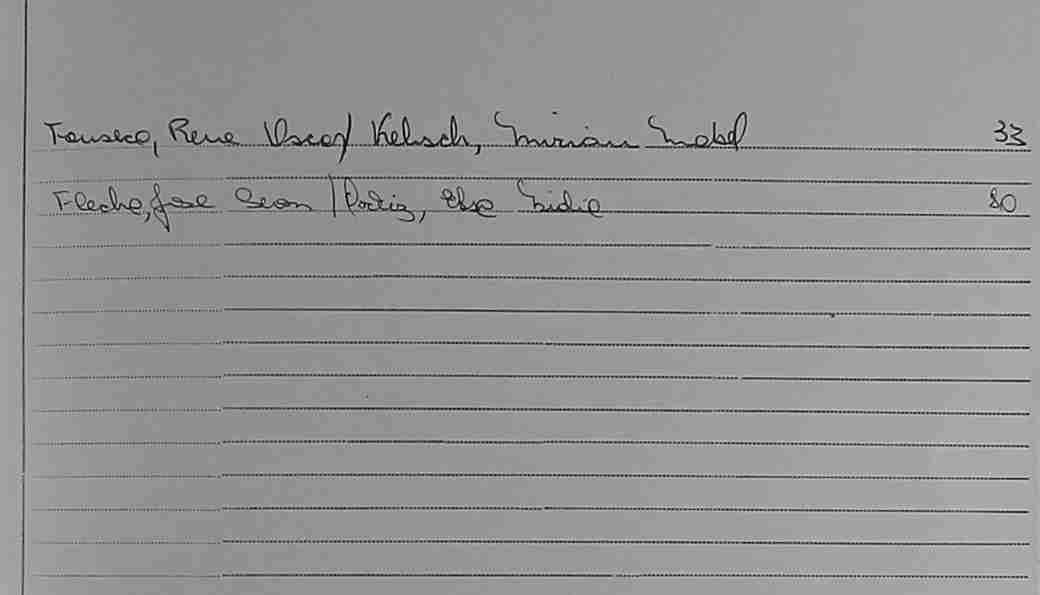 Fonseca, Rene Oscar/ Kelsch, Mirian Mabel 33
Fleche, Jose / Ortiz, Elsa Lidia 80